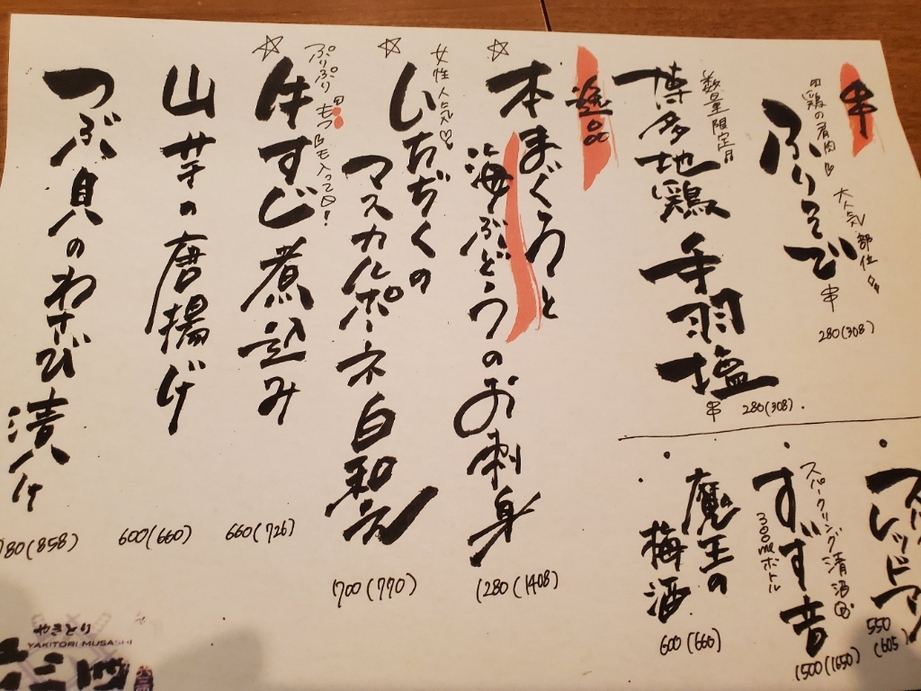 串
ふりそで
鶏の肩肉
大人気部位
串
280(308)
数量限定
博多地鶏
手羽塩
串 280(308).
逸品
☆
本まぐろと
海ぶどうのお刺身
1280(1408)
☆
女性人気♡
いちぢくの
マスカルポーネ白和え
700(770)
☆
ぷりぷり
もつも入ってる!
牛すじ煮込み
660(726)
山芋の唐揚げ
600(660)
つぶ貝のわさび漬け
780(858)
レッドア
550
(605)
スパークリング清酒
すず音
300mlボトル
1500(1650)
魔王の
梅酒
600(660)
やきとり
YAKITORI MUSASHI